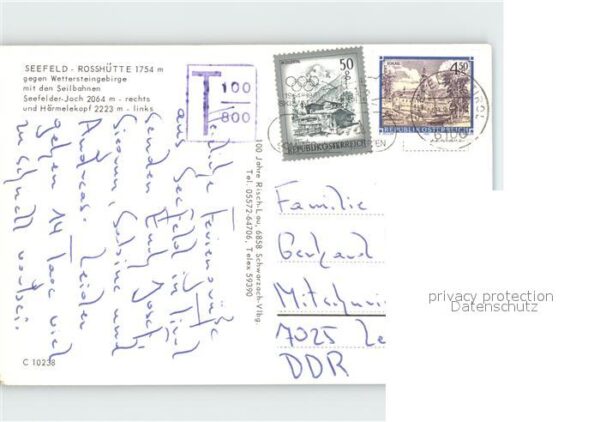 SEEFELD - ROSSHÜTTE 1754 m
gegen Wettersteingebirge
mit den Seilbahnen
Seefelder-Joch 2064 m - rechts
und Härmelekopf 2223 m - links
T 100
800
50
REPUBLIK ÖSTERREICH
4.50
REPUBLIK ÖSTERREICH
6100
Herzliche Feriengrüße
aus Seefeld in Tirol
senden Euch
Sabine und
Andreas. Leider
gehen 14 Tage viel
zu schnell vorbei.
100 Jahre Risch-Lau, 6858 Schwarzach-Vlbg.
Tel. 05572-64706, Telex 59390
Familie
Gerhard
7025
DDR
C 10238
privacy protection
Datenschutz